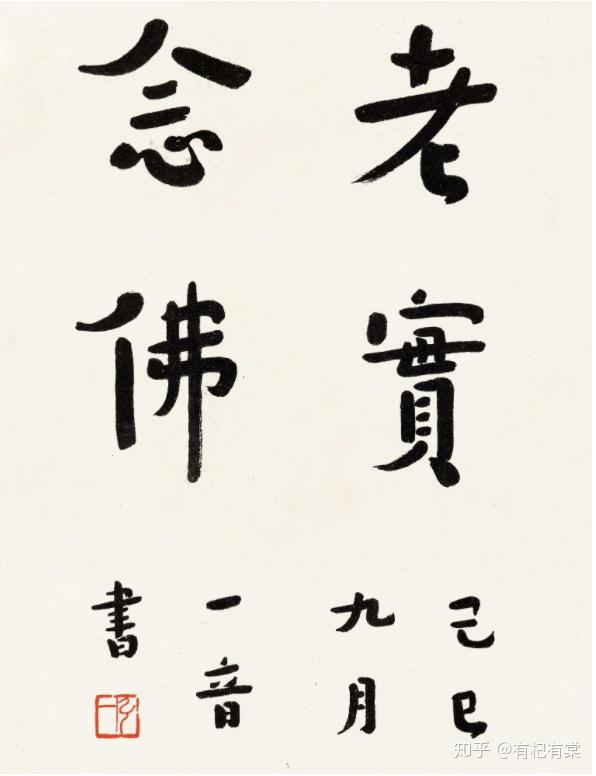 老實
念佛
己巳
九月
一音
書
知乎 @有杞有棠